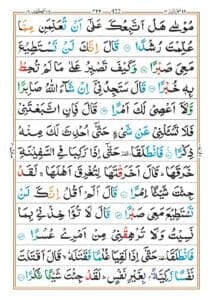 مُوْسٰى هَلْ اَتَّبِعُكَ عَلٰٓى اَنْ تُعَلِّمَنِ مِمَّا
عُلِّمْتَ رُشْدًا ۞ قَالَ اِنَّكَ لَنْ تَسْتَطِيْعَ
مَعِيَ صَبْرًا ۞ وَكَيْفَ تَصْبِرُ عَلٰى مَا لَمْ تُحِطْ
بِهٖ خُبْرًا ۞ قَالَ سَتَجِدُنِيْٓ اِنْ شَآءَ اللّٰهُ صَابِرًا
وَّلَآ اَعْصِيْ لَكَ اَمْرًا ۞ قَالَ فَاِنِ اتَّبَعْتَنِيْ
فَلَا تَسْـَٔلْنِيْ عَنْ شَيْءٍ حَتّٰٓى اُحْدِثَ لَكَ مِنْهُ
ذِكْرًا ۞ فَانْطَلَقَا حَتّٰٓى اِذَا رَكِبَا فِي السَّفِيْنَةِ
خَرَقَهَا قَالَ اَخَرَقْتَهَا لِتُغْرِقَ اَهْلَهَا لَقَدْ
جِئْتَ شَيْـًٔا اِمْرًا ۞ قَالَ اَلَمْ اَقُلْ اِنَّكَ لَنْ
تَسْتَطِيْعَ مَعِيَ صَبْرًا ۞ قَالَ لَا تُؤَاخِذْنِيْ بِمَا
نَسِيْتُ وَلَا تُرْهِقْنِيْ مِنْ اَمْرِيْ عُسْرًا ۞
فَانْطَلَقَا حَتّٰٓى اِذَا لَقِيَا غُلٰمًا فَقَتَلَهٗ قَالَ اَقَتَلْتَ
نَفْسًا زَكِيَّةً بِغَيْرِ نَفْسٍ لَقَدْ جِئْتَ شَيْـًٔا نُّكْرًا ۞